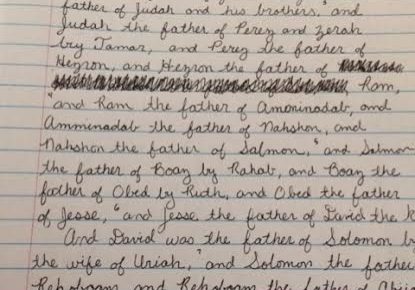 father of Judah and his brothers, and
Judah the father of Perez and Zerah
by Tamar, and Perez the father of
Hezron, and Hezron the father of
Ram,
"and Ram the father of Amminadab, and
Amminadab the father of Nahshon, and
Nahshon the father of Salmon, "and Salmon
the father of Boaz by Rahab, and Boaz the
father of Obed by Ruth, and Obed the father
of Jesse, "and Jesse the father of David the k
And David was the father of Solomon b
the wife of Uriah, "and Solomon the father
Rehoboam, and Rehoboam the father of Abij